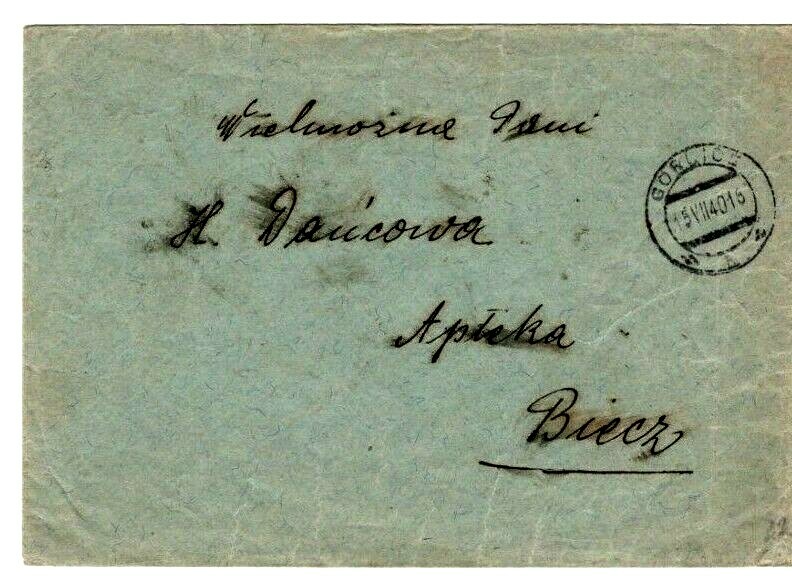 Wielmożna Pani
H. Dańcowa
Apteka
Biecz
GORLICE
15 VII 40 16